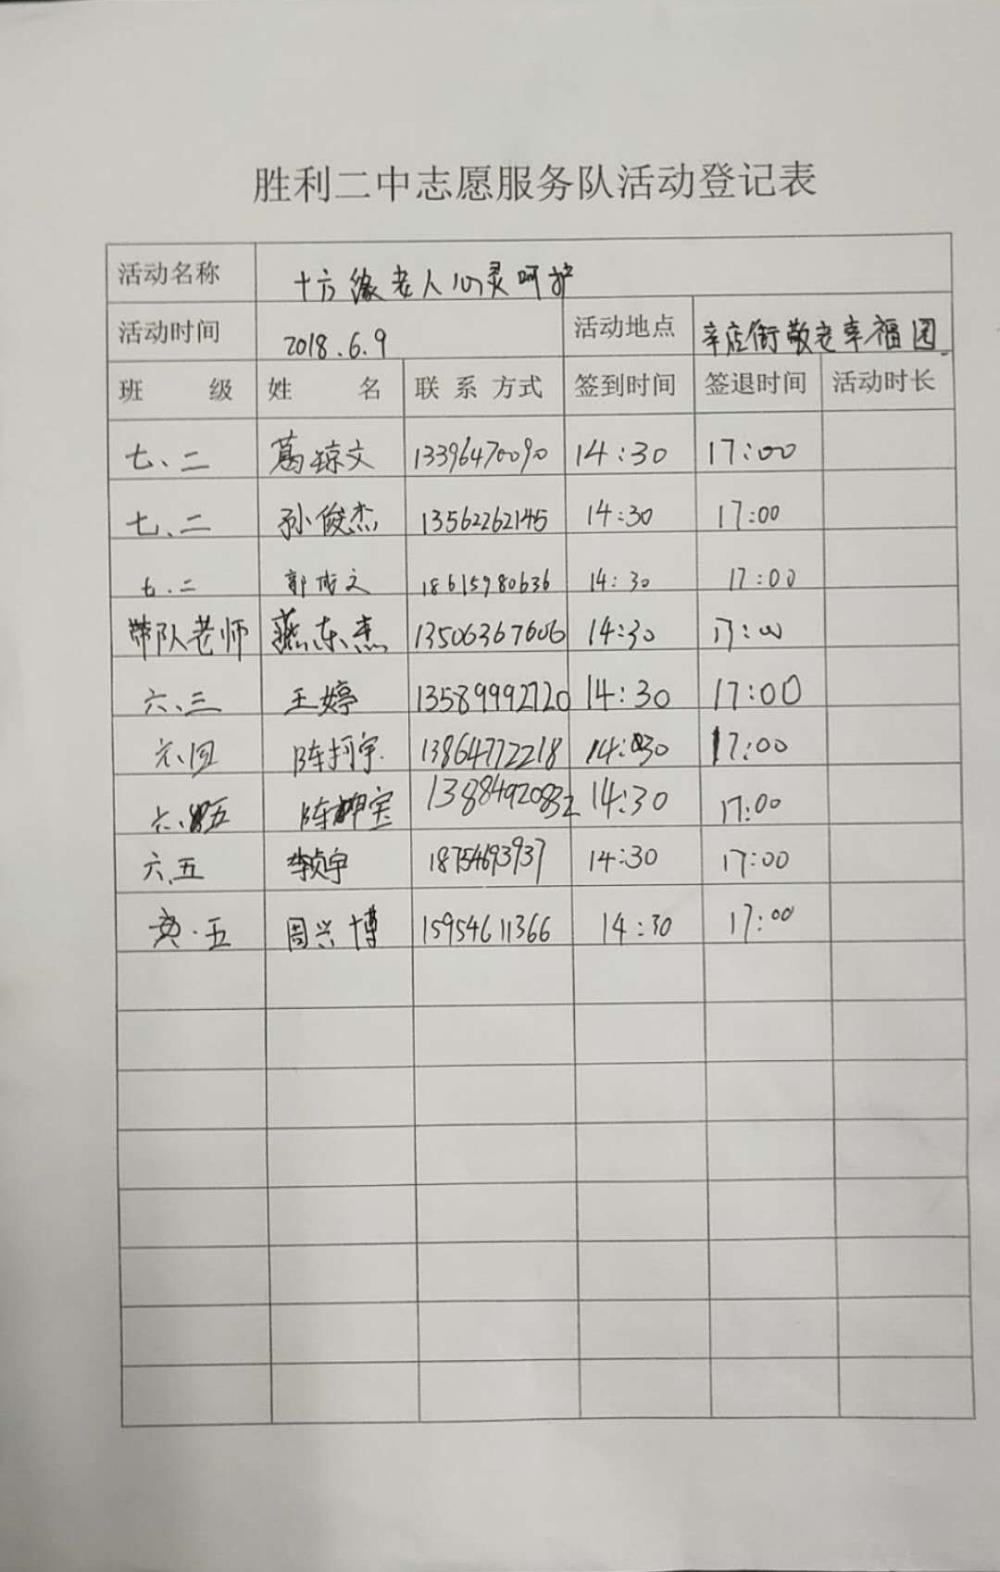 胜利二中志愿服务队活动登记表
活动名称 十方缘老人心灵呵护
活动时间 2018.6.9 活动地点 辛店街敬老幸福园
班 级 姓 名 联系方式 签到时间 签退时间 活动时长
七、二 葛琼文 13396470090 14:30 17:00
七、二 孙俊杰 13562262145 14:30 17:00
七.二 郭成文 18615980636 14:30 17:00
带队老师 燕东杰 13506367606 14:30 17:00
六、三 王婷 13589992720 14:30 17:00
六、四 陈柯宇 13864772218 14:30 17:00
六、五 陈 宝 13884920832 14:30 17:00
六、五 李贞宇 18754693937 14:30 17:00
六.五 周兴博 15954611366 14:30 17:00